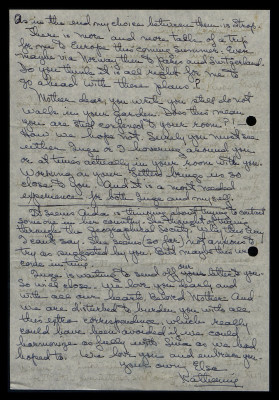 As in the end my choice between them is
There is more and more talk of a trip
for me to Europe this coming summer. Even
maybe via Norway then to Paris and Switzerland.
Do you think it is all right for me to
go ahead with these plans?
Mother dear, you write you still do not
walk in your garden. Does this mean
you are still confined to your room?
How we hope not. Surely you must see
either Inge or I hovering around you
or at times actually in your room with you.
Working on your letters brings us so
close to you. And it is a most needed
experience for both Inge and myself.
It seems Aida is thinking about trying to contact
someone in her country, she thought
through the Geographical Society. Why this way
I can't say. She seems so far not anxious to
try as suggested by you. But maybe this will
come in time.
Inge is waiting to send off your letter to you.
So will close. We love you dearly and
with all our hearts Beloved Mother. And
we are disturbed to burden you with all
this extra correspondence, which really
could have been avoided if we could
harmonize as fully with as we had
hoped to. We love you and embrace you.
Your own Else
Katherine